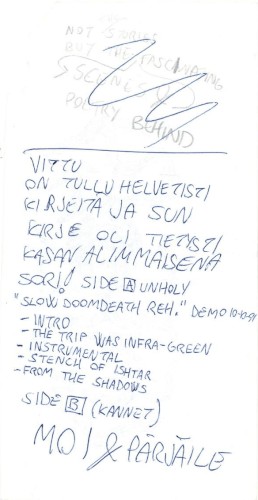 NOT STORIES
BUT THE FASCINATING
SCIENCE
POETRY BEHIND
VITTU
ON TULLU HELVETISTI
KIRJEITÄ JA SUN
KIRJE OLI TIETYSTI
KASAN ALIMMAISENA
SORI! SIDE A UNHOLY
"SLOW DOOMDEATH REH." DEMO 10-10-91
- INTRO
- THE TRIP WAS INFRA-GREEN
- INSTRUMENTAL
- STENCH OF ISHTAR
- FROM THE SHADOWS
SIDE B (KANNET)
MOI & PÄRJÄILE